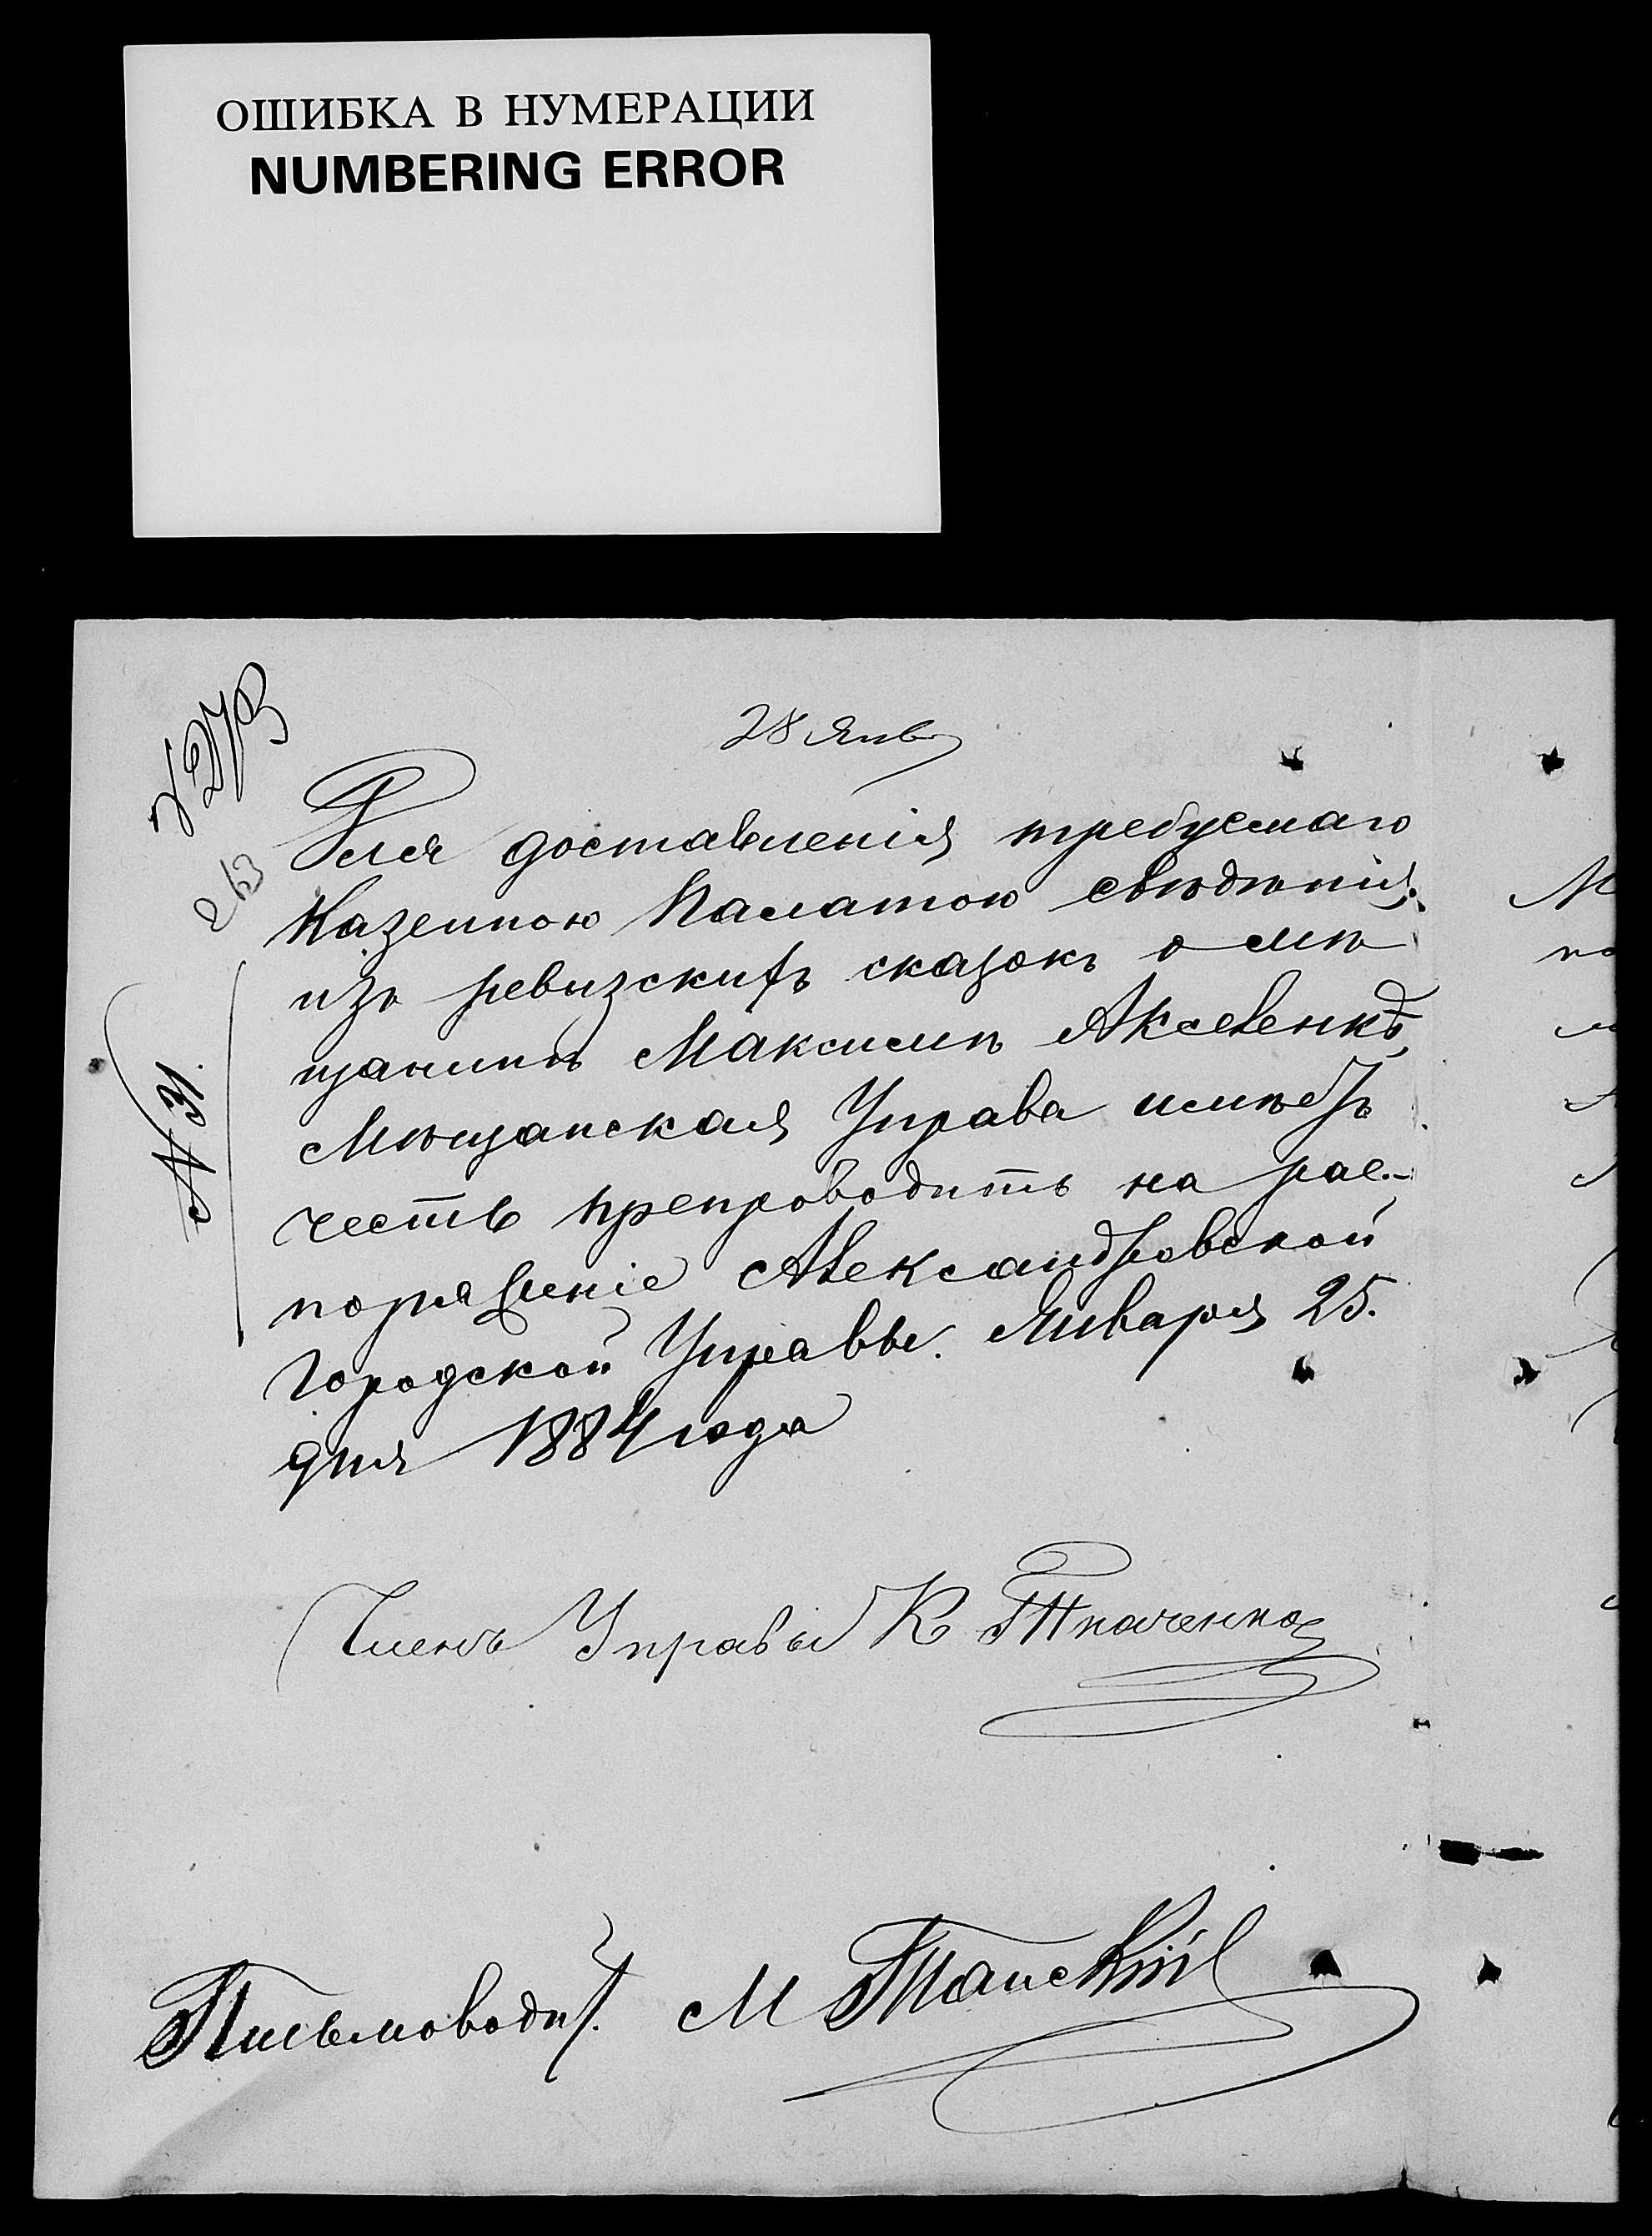 ОШИБКА В НУМЕРАЦИИ
NUMBERING ERROR
28 Янв
Для доставленія требуемаго
Казенною Палатою свѣдѣнія
изъ ревизскихъ сказокъ о мѣ
щанинѣ Максимѣ Аксененкѣ,
Мѣщанская Управа имѣетъ
честь препроводить на рас-
поряженіе Александровской
Городской Управы. Января 25.
дня 1884 года
№ 31.
263
Членъ Управы К Ткаченко
Письмоводит. М Танскій